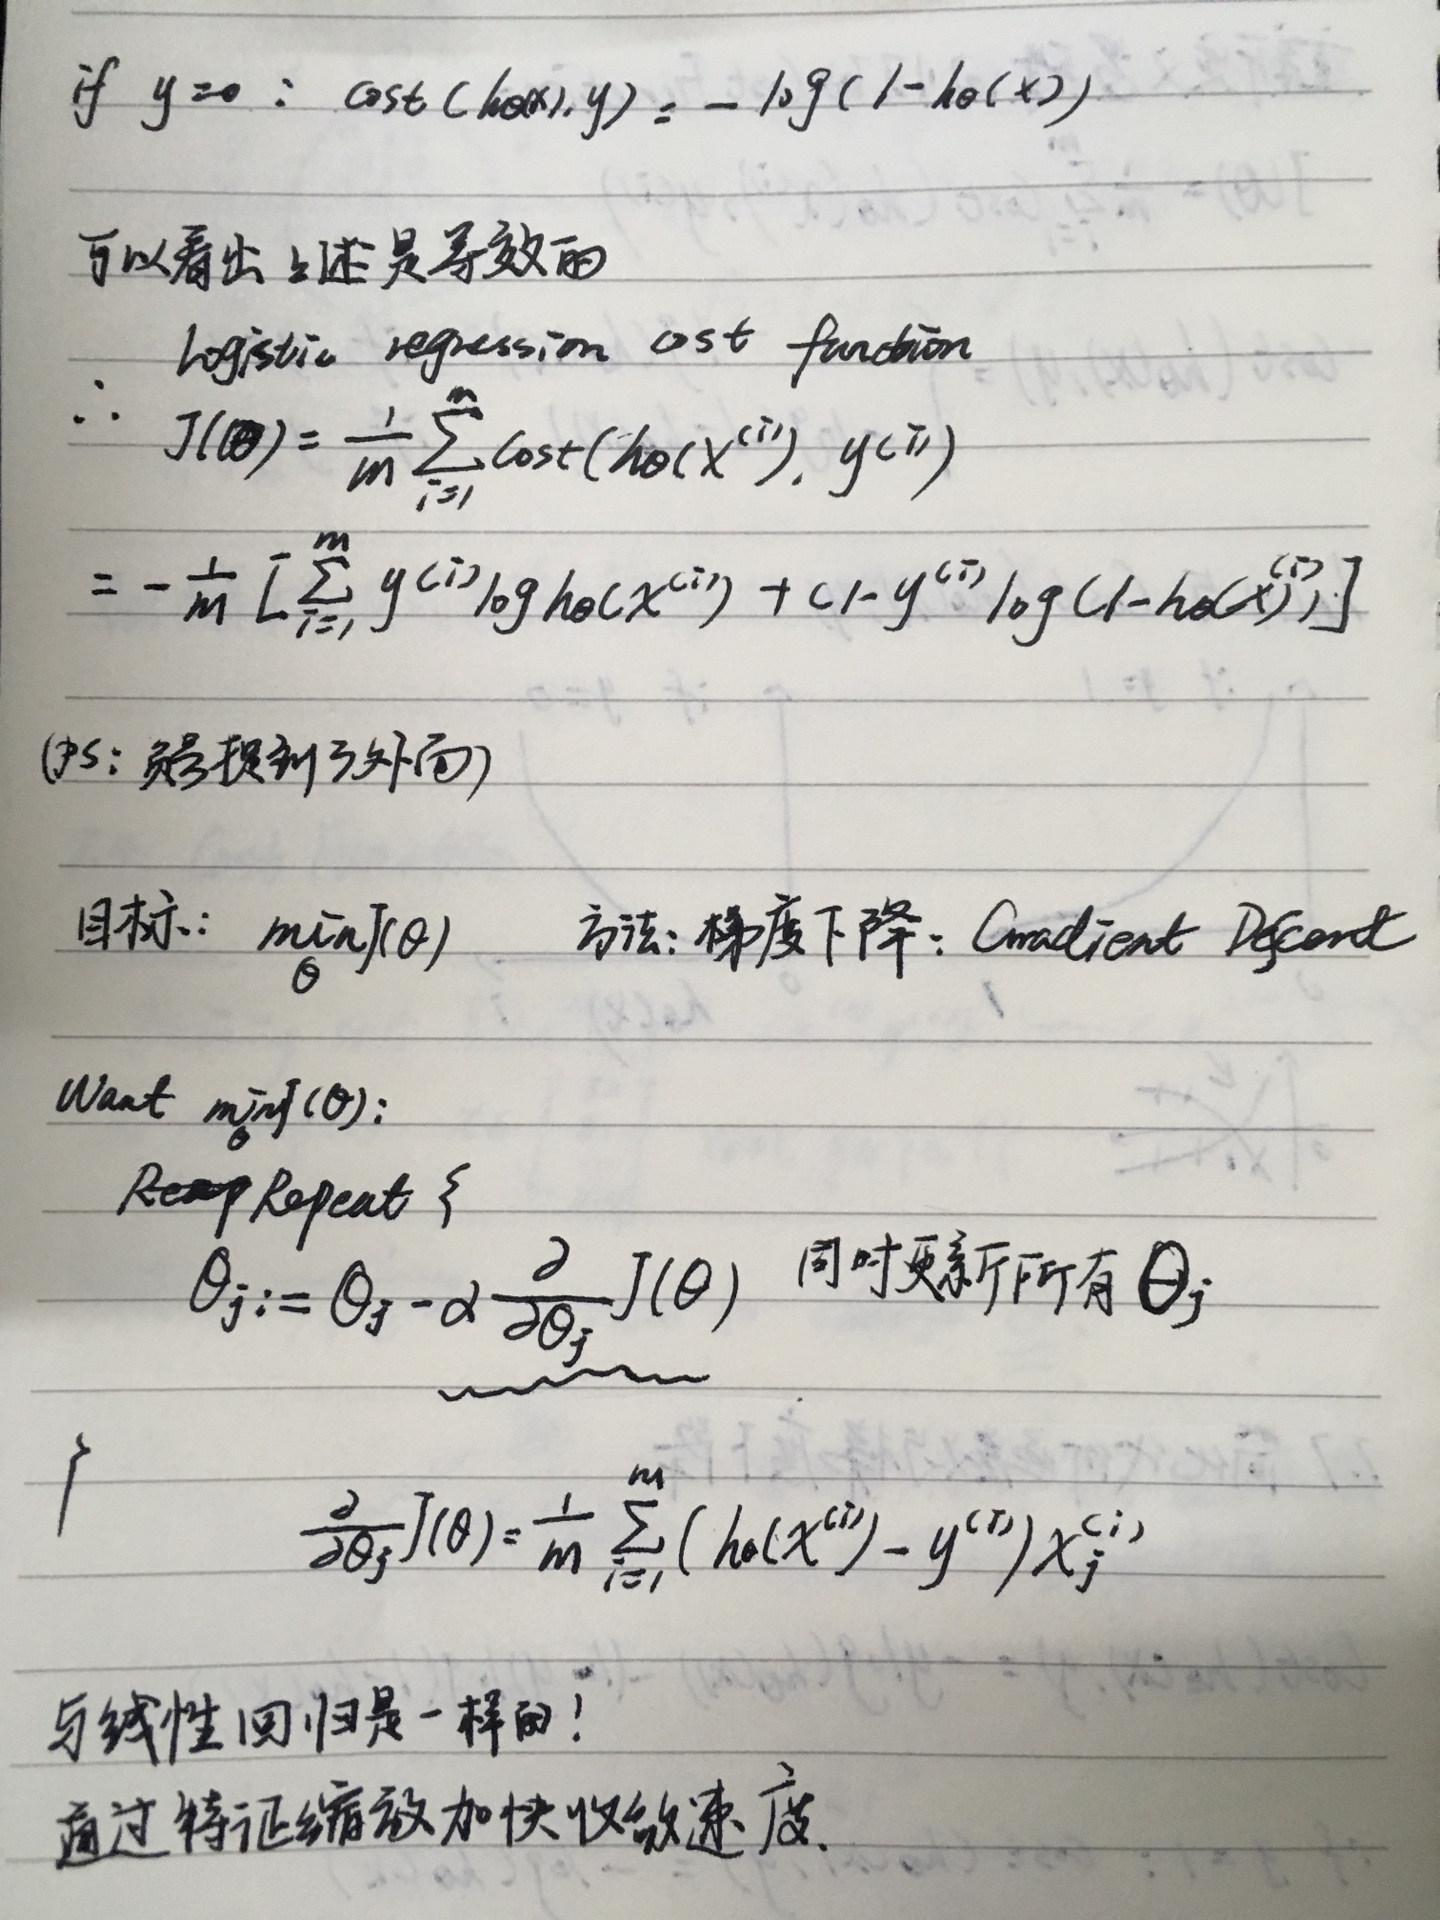 if y=0 : cost(hθ(x), y) = - log(1-hθ(x))
可以看出上述是等效的
Logistic regression cost function
∴ J(θ) = 1/m ∑_{i=1}^{m} Cost(hθ(x^(i)), y^(i))
= - 1/m [ ∑_{i=1}^{m} y^(i) log hθ(x^(i)) + (1-y^(i)) log(1-hθ(x^(i))) ]
(PS: 负号提到了外面)
目标: min_θ J(θ) 方法: 梯度下降: Gradient Descent
Want min_θ J(θ):
Repeat {
θj := θj - α ∂/∂θj J(θ) 同时更新所有 θj
}
∂/∂θj J(θ) = 1/m ∑_{i=1}^{m} (hθ(x^(i)) - y^(i)) xj^(i)
与线性回归是一样的!
通过特征缩放加快收敛速度.